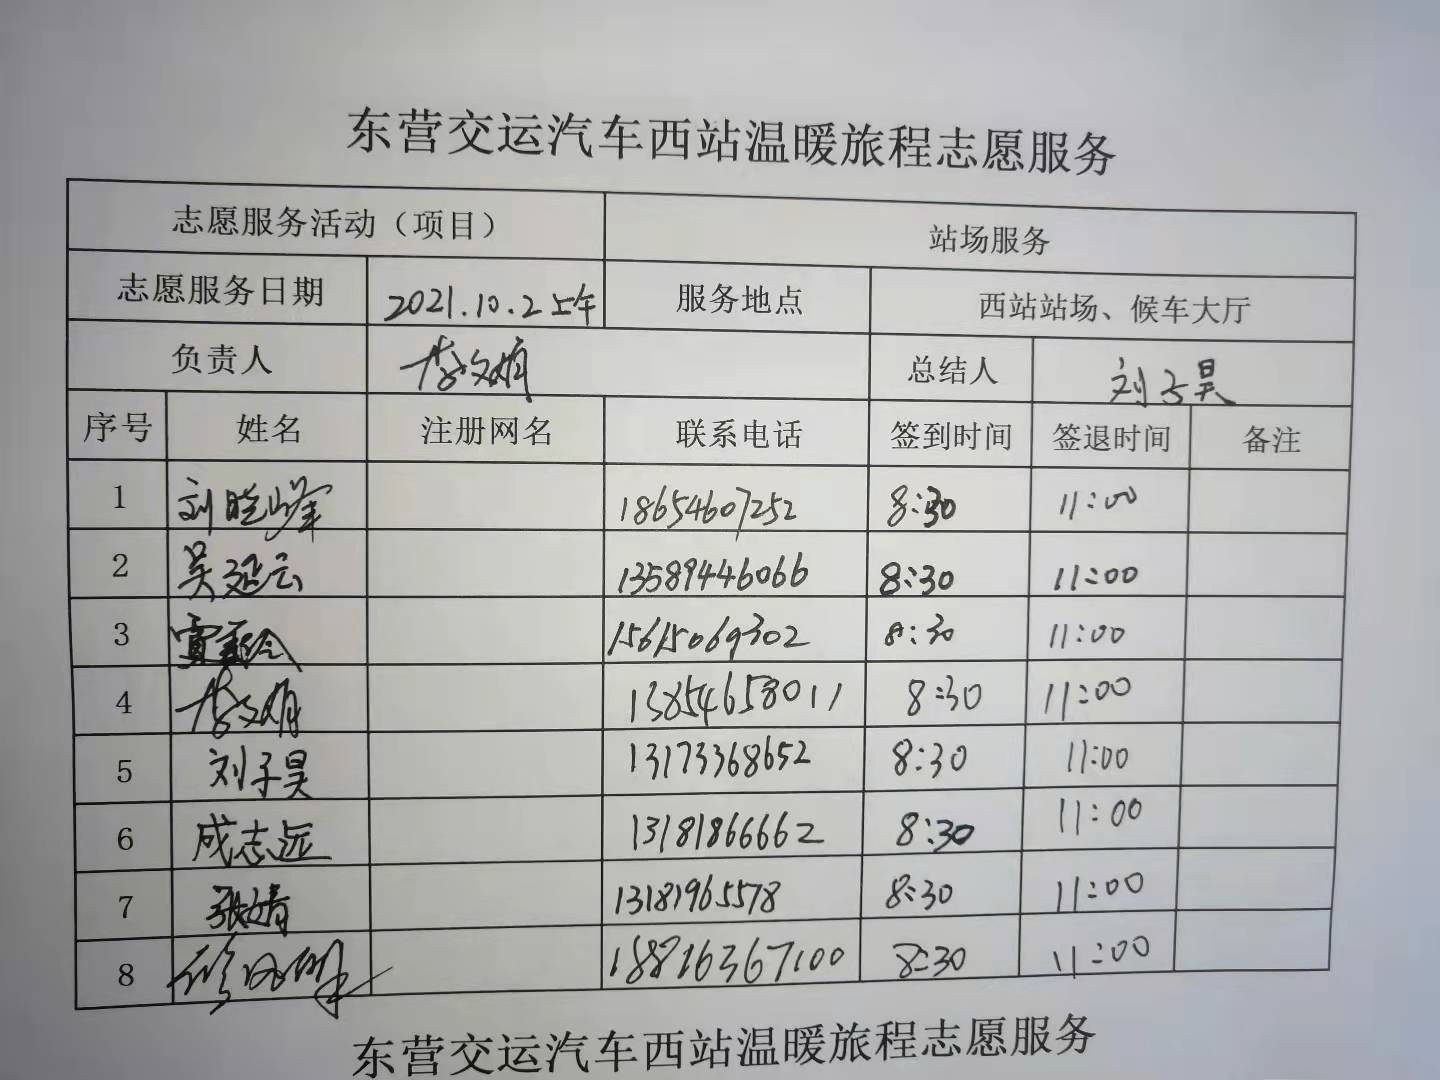 东营交运汽车西站温暖旅程志愿服务
志愿服务活动（项目） 站场服务
志愿服务日期 2021.10.2上午 服务地点 西站站场、候车大厅
负责人 李文娟 总结人 刘子昊
序号 姓名 注册网名 联系电话 签到时间 签退时间 备注
1 刘晓峰 18654607252 8:30 11:00
2 吴延云 13589446066 8:30 11:00
3 15615069302 8:30 11:00
4 李文娟 13854658011 8:30 11:00
5 刘子昊 13173368652 8:30 11:00
6 成志远 13181866662 8:30 11:00
7 张婧 13181965578 8:30 11:00
8 18816367100 8:30 11:00
东营交运汽车西站温暖旅程志愿服务